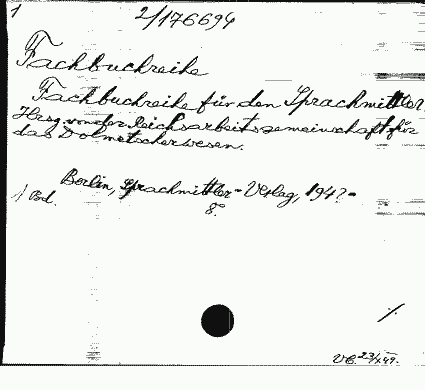 1 2/176694
Fachbuchreihe
Fachbuchreihe für den Sprachmittler
Hrsg. von der Reichsarbeitsgemeinschaft für
das Dolmetscherwesen.
Berlin, Sprachmittler-Verlag, 194?-
1 Bd. 8°.
VB. 23/X.49.